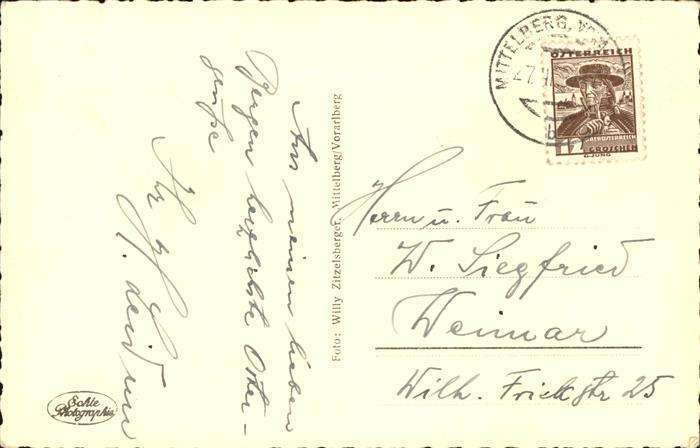 Aus meinen lieben
Bergen herzlichste Oster-
grüße
Ihr
Foto: Willy Zitzelsberger, Mittelberg/Vorarlberg
Echte
Photographie
MITTELBERG, VOR
ÖSTERREICH
12 GROSCHEN
G. JUNG
Herrn u. Frau
W. Siegfried
Weimar
Wilh. Frickstr 25